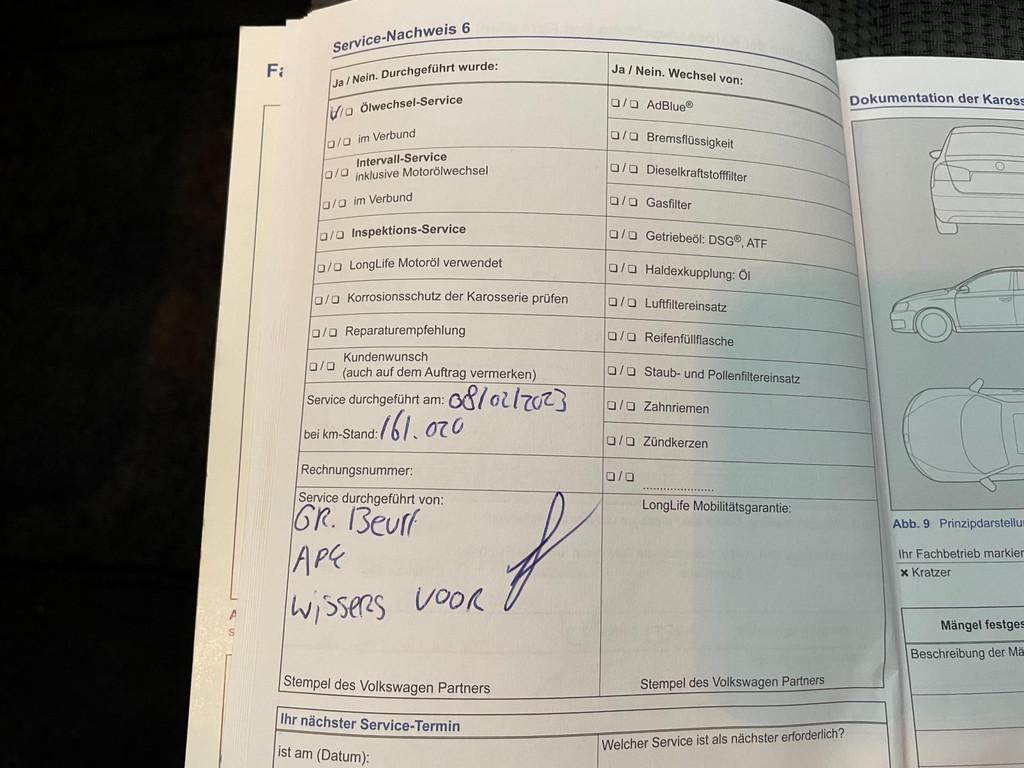 Service-Nachweis 6
Ja / Nein. Durchgeführt wurde:
❏/❏ Ölwechsel-Service
❏/❏ im Verbund
❏/❏ Intervall-Service
inklusive Motorölwechsel
❏/❏ im Verbund
❏/❏ Inspektions-Service
❏/❏ LongLife Motoröl verwendet
❏/❏ Korrosionsschutz der Karosserie prüfen
❏/❏ Reparaturempfehlung
❏/❏ Kundenwunsch
(auch auf dem Auftrag vermerken)
Service durchgeführt am: 08/02/2023
bei km-Stand: 161.020
Rechnungsnummer:
Service durchgeführt von:
GR. Beurt
APK
Wissers VOOR
Stempel des Volkswagen Partners
Ja / Nein. Wechsel von:
❏/❏ AdBlue®
❏/❏ Bremsflüssigkeit
❏/❏ Dieselkraftstofffilter
❏/❏ Gasfilter
❏/❏ Getriebeöl: DSG®, ATF
❏/❏ Haldexkupplung: Öl
❏/❏ Luftfiltereinsatz
❏/❏ Reifenfüllflasche
❏/❏ Staub- und Pollenfiltereinsatz
❏/❏ Zahnriemen
❏/❏ Zündkerzen
❏/❏ ....................
LongLife Mobilitätsgarantie:
Stempel des Volkswagen Partners
Ihr nächster Service-Termin
ist am (Datum):
Welcher Service ist als nächster erforderlich?
Dokumentation der Kaross
Abb. 9 Prinzipdarstellu
Ihr Fachbetrieb markier
✖ Kratzer
Mängel festges
Beschreibung der Mä